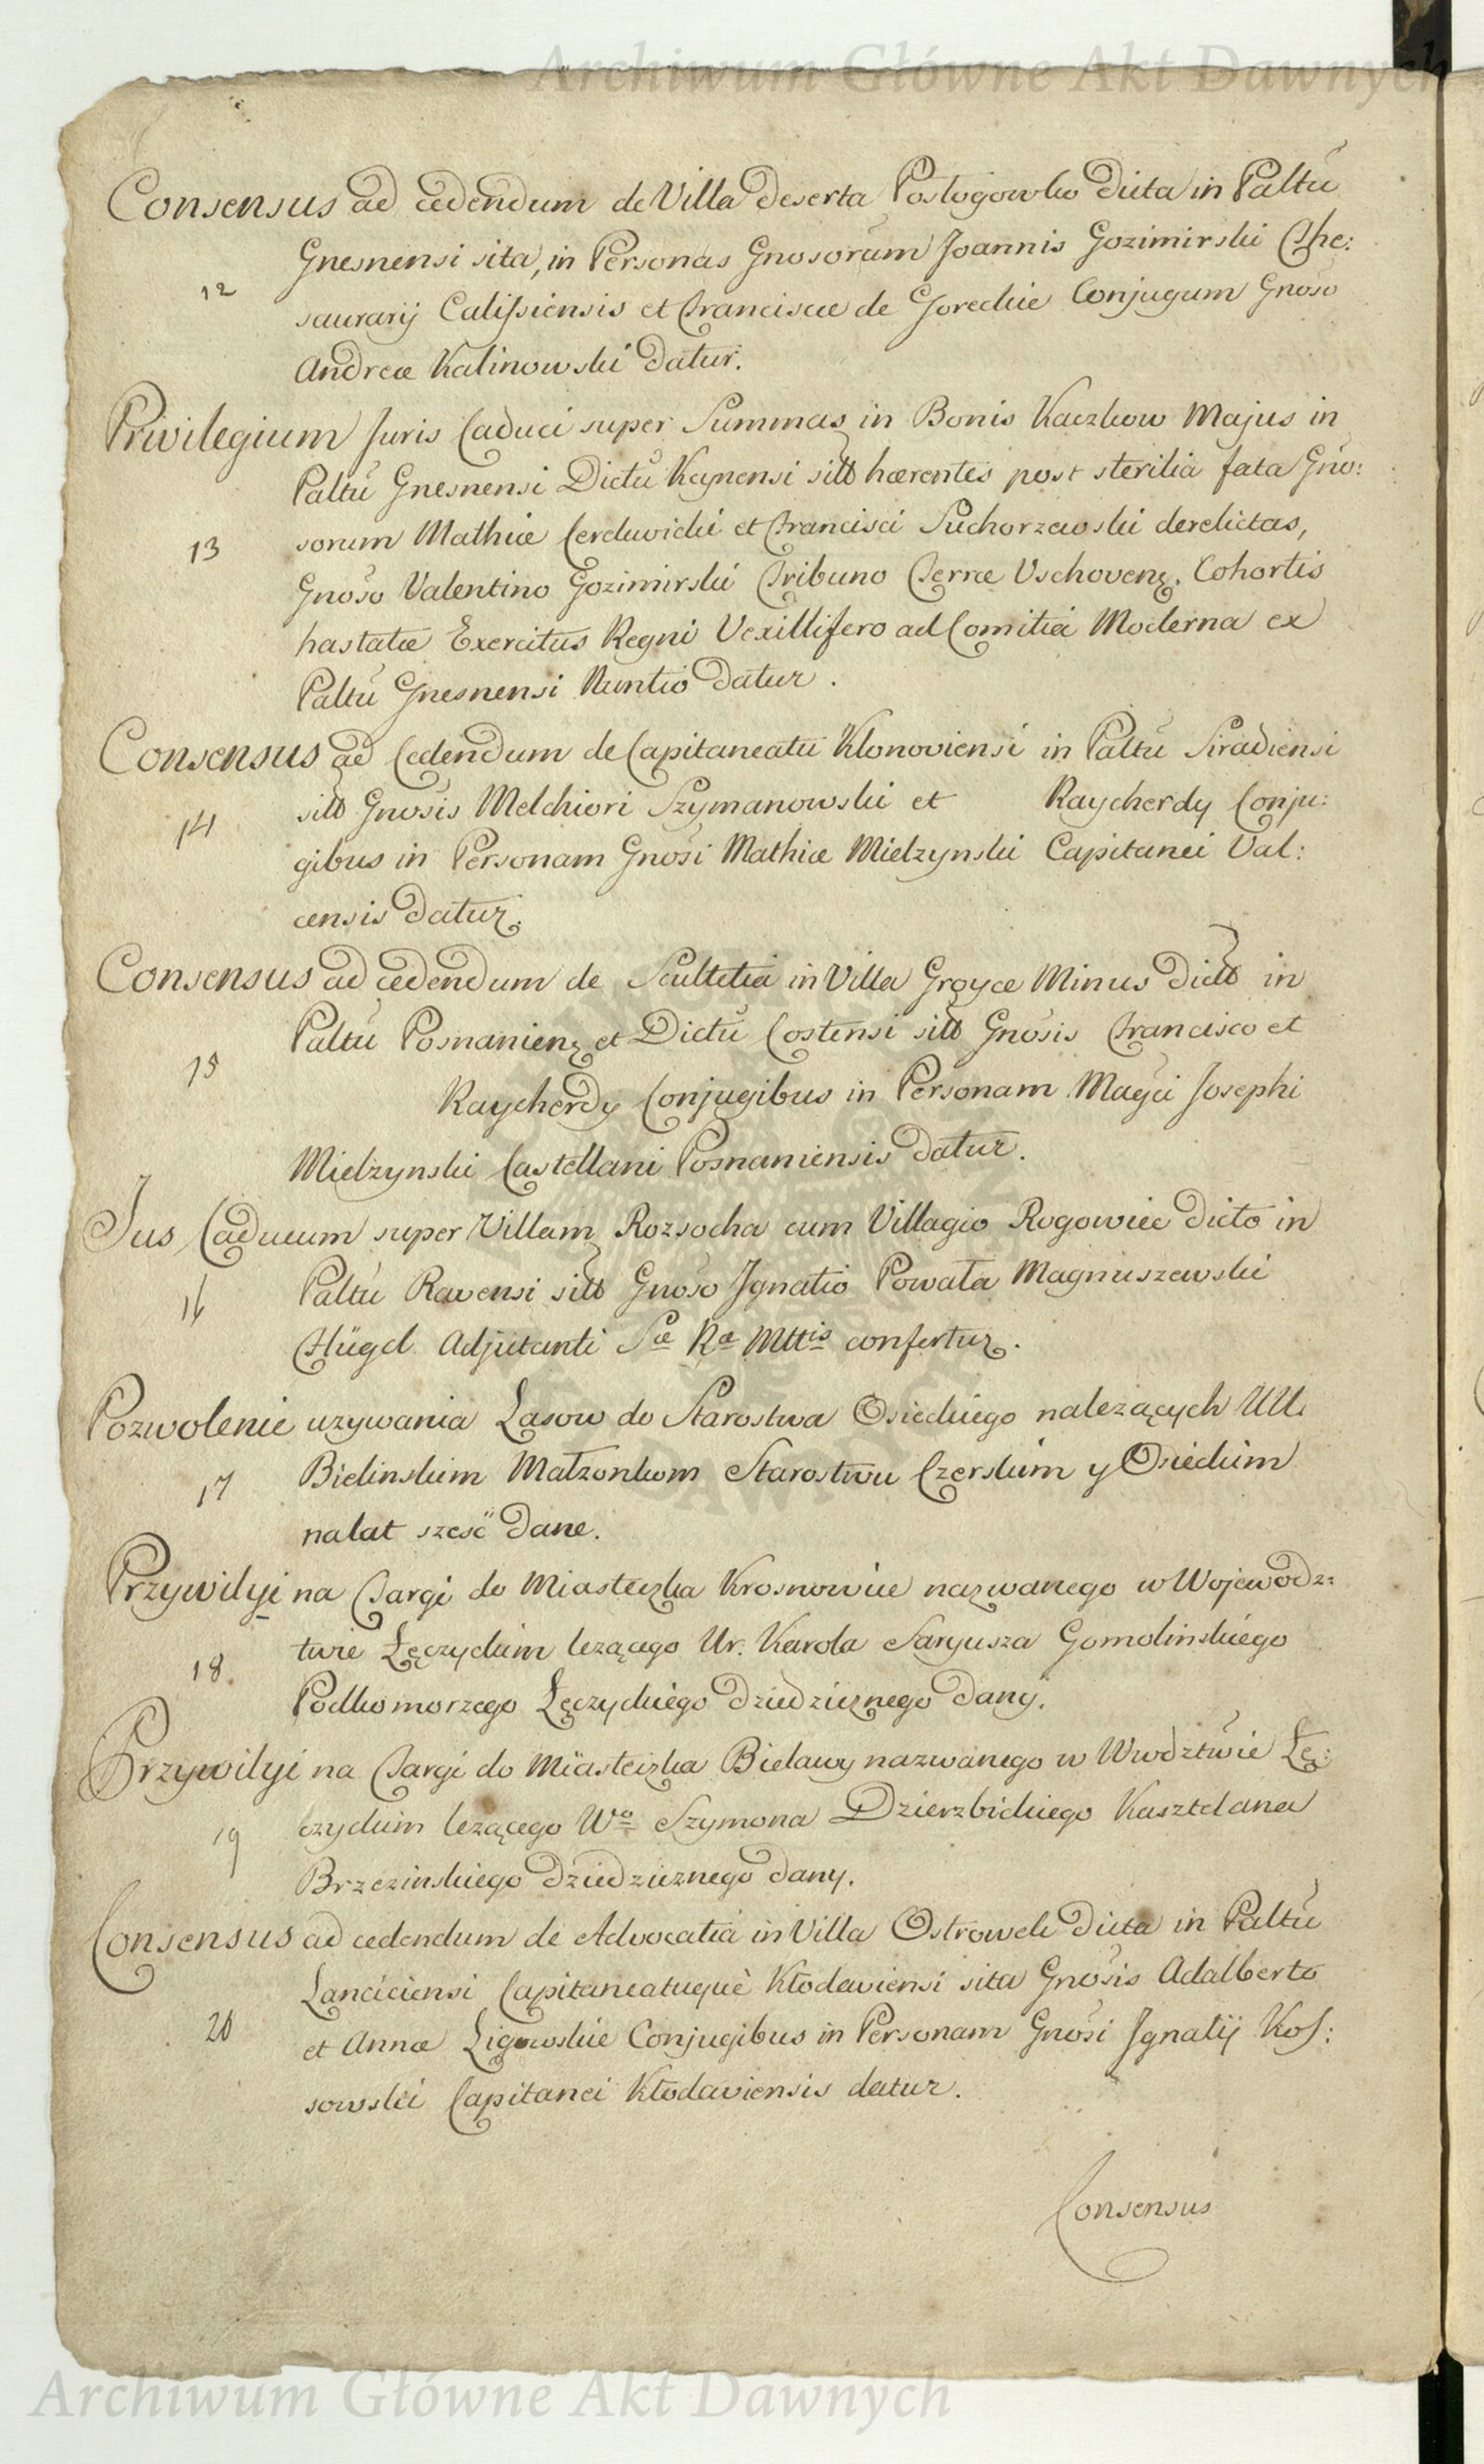 Archiwum Główne Akt Dawnych
Consensus ad cedendum de Villa deserta Postogowko dicta in Paltu
Gnesnensi sita, in Personas Gnosorum Joannis Gozimirski The:
12
saurarij Calissiensis et Franciscæ de Goreckie Conjugum Gnoso
Andreæ Kalinowski datur.
Privilegium Juris Caduci super Summas in Bonis Kaczkow Majus in
Paltu Gnesnensi Dictu Kcynensi sitt hærentes post sterilia fata Gno:
13
sorum Mathiæ Cerekwicki et Francisci Suchorzewski derelictas,
Gnoso Valentino Gozimirski Tribuno Terræ Vschovens. Cohortis
hastatæ Exercitus Regni Vexillifero ad Comitia Moderna ex
Paltu Gnesnensi Nuntio datur.
Consensus ad Cedendum de Capitaneatu Klonoviensi in Paltu Siradiensi
sitt Gnosis Melchiori Szymanowski et Raycherdy Conju:
14
gibus in Personam Gnosi Mathiæ Mielzynski Capitanei Val:
censis datur.
Consensus ad cedendum de Scultetia in Villa Gryce Minus dicts in
Paltu Posnaniens et Dictu Costensi sitt Gnosis Francisco et
15
Raycherdy Conjugibus in Personam Magci Josephi
Mielzynski Castellani Posnaniensis datur.
Jus Caducum super Villam Rozsocha cum Villagio Rogowiec dicto in
Paltu Ravensi sitt Gnoso Jgnatio Powała Magnuszewski
16
Flügel Adjutanti Sæ Ræ Mttis confertur.
Pozwolenie uzywania Lasow do Starostwa Osieckiego nalezących UU.
Bielinskim Małzonkom Starostwu Czerskim y Osieckim
17
nalat szesc dane.
Przywilyi na Targi do Miasteczka Krosnowice nazwanego w Wojewodz:
twie Łęczyckim lezącego Ur. Karola Saryusza Gomolinskiego
18.
Podkomorzego Łęczyckiego dziedzicznego dany.
Przywilyi na Targi do Miasteczka Bielawy nazwanego w Wwdztwie Łę:
czyckim lezącego Wo Szymona Dzierzbickiego Kasztelana
19
Brzezinskiego dziedzicznego dany.
Consensus ad cedendum de Advocatia in Villa Ostrowek dicta in Paltu
Lanciciensi Capitaneatuque Kłodaviensi sita Gnosis Adalberto
20
et Annæ Ligowskie Conjugibus in Personam Gnosi Jgnatij Kos:
sowski Capitanei Kłodaviensis datur.
Consensus
Archiwum Główne Akt Dawnych